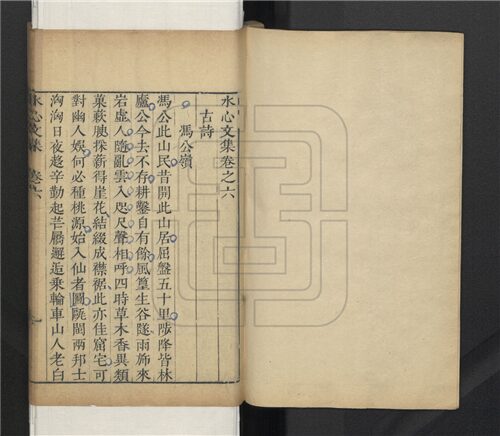 水心文集卷之六
古詩
馮公嶺
馮公此山民昔開此山居屈盤五十里陟降皆林
廬公今去不存耕鑿自有餘風篁生谷隧雨旆來
岩虛人隨亂雲入咫尺聲相呼四時草木香異類
菓蓏腴採薪得崖花結綴成襟裾此亦佳窟宅可
對幽人娛何必種桃源始入仙者圖甌閩兩邦士
洶洶日夜趨辛勤起芒屩邂逅乘輪車山人老白
水心文集 卷六 一